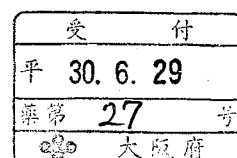 受 付
平 30. 6. 29
薬第 27 号
大阪府